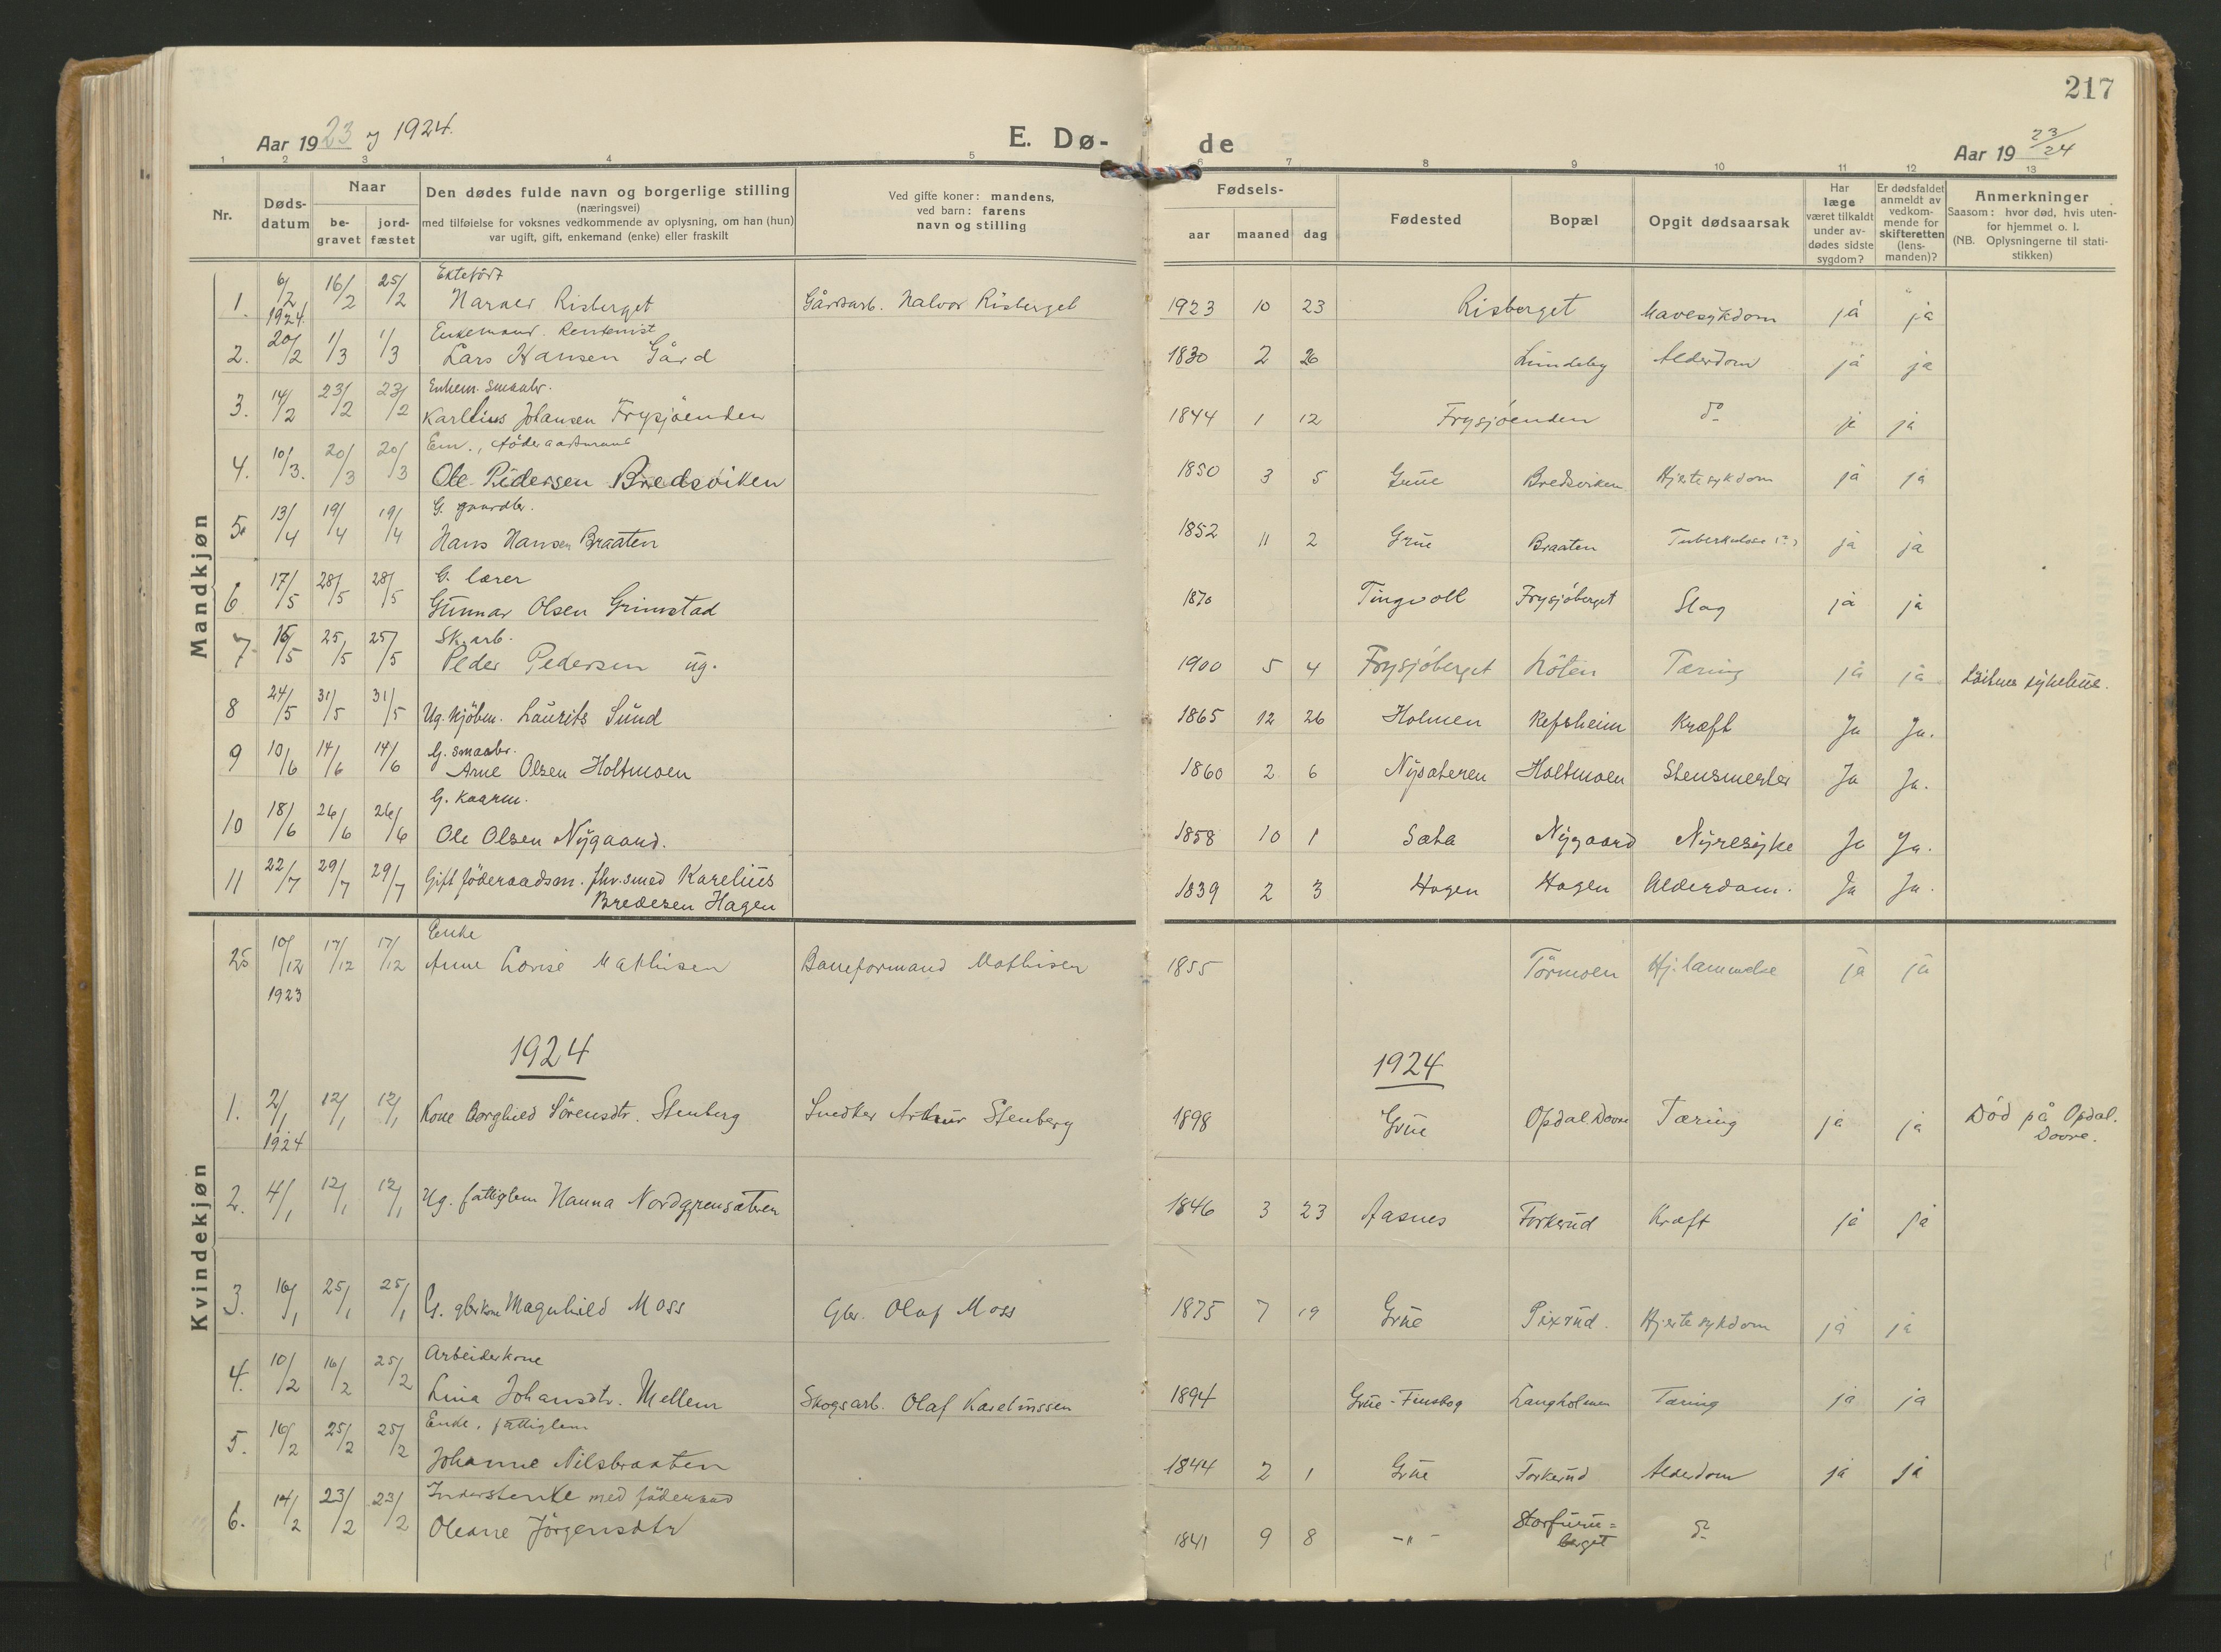 217
Aar 1923 og 1924.
E. Dø-
de
Aar 19 23/24
1 2 3 4 5 6 7 8 9 10 11 12 13
Nr.
Døds-
datum
Naar
be-
gravet
jord-
fæstet
Den dødes fulde navn og borgerlige stilling
(næringsvei)
med tilføielse for voksnes vedkommende av oplysning, om han (hun)
var ugift, gift, enkemand (enke) eller fraskilt
Ved gifte koner: mandens,
ved barn: farens
navn og stilling
Fødsels-
aar maaned dag
Fødested
Bopæl
Opgit dødsaarsak
Har
læge
været tilkaldt
under av-
dødes sidste
sygdom?
Er dødsfaldet
anmeldt av
vedkom-
mende for
skifteretten
(lens-
manden)?
Anmerkninger
Saasom: hvor død, hvis uten-
for hjemmet o. l.
(NB. Oplysningerne til stati-
stikken)
Mandkjøn
Ektefødt
1. 6/2 1924. 16/2 25/2 Risberget Gårdsarb. Halvor Risberget 1923 10 23 Risberget Mavesykdom ja ja
Enkemand. Rentenist
2. 20/2 1/3 1/3 Lars Hansen Gård 1830 2 26 Lundeby Alderdom ja ja
Enkem. smaabr.
3. 14/2 23/2 23/2 Karelius Johansen Frysjøenden 1844 1 12 Frysjøenden do ja ja
Em., føderaadsmand
4. 10/3. 20/3 20/3 Ole Pedersen Bredsviken 1850 3 5 Grue Bredsviken Hjertesykdom ja ja
G. gaardbr.
5. 13/4 19/4 19/4 Hans Hansen Braaten 1852 11 2 Grue Braaten Tuberkulose (?) ja ja
G. lærer
6 17/5 28/5 28/5 Gunnar Olsen Grimstad 1870 Tingvoll Frysjøberget Slag ja ja
Sk.arb.
7. 15/5 25/5 25/5 Peder Pedersen ug. 1900 5 4 Frysjøberget Løten Tæring ja ja Løitens sykehus.
8 24/5 31/5 31/5 Ug. kjøbm. Laurits Sund 1865 12 26 Holmen Refsheim Kræft Ja Ja.
G. smaabr.
9 10/6 14/6 14/6 Arne Olsen Holtmoen 1860 2 6 Nysæteren Holtmoen Stensmerter Ja Ja.
G. kaarm.
10 18/6 26/6 26/6 Ole Olsen Nygaard. 1858 10 1 Sæta Nygaard Nyresyke Ja Ja.
11 22/7 29/7 29/7 Gift føderaadsm. fhv. smed Karelius 1839 2 3 Hagen Hagen Alderdom. Ja Ja.
Bredesen Hagen
Kvindekjøn
Enke
25 10/12 1923 17/12 17/12 Anne Lovise Mathisen Baneformand Mathisen 1855 Tørmoen Hj. lammelse ja ja
1924
1924
1. 2/1 1924 12/1 12/1 Kone Borghild Sørensdtr. Stenberg Snedker Arthur Stenberg 1898 Grue Opdal. Dovre Tæring ja ja Død på Opdal.
Dovre.
2. 4/1 12/1 12/1 Ug. fattiglem Hanna Nordgrensæteren 1846 3 23 Aasnes Forkerud Kræft ja ja
3. 16/1 25/1 25/1 G. gbrkone Magnhild Moss Gbr. Olaf Moss 1875 7 19 Grue Pixrud. Hjertesykdom ja ja
Arbeiderkone
4. 10/2 16/2 25/2 Lina Johansdtr. Mellem Skogsarb. Olaf Karelinssen 1894 Grue-Finskog Langholmen Tæring ja ja
Enke, fattiglem
5. 16/2 25/2 25/2 Johanne Nilsbraaten 1844 2 1 Grue Forkerud Alderdom ja ja
Inderstenke med føderaad
6. 14/2 23/2 23/2 Oleane Jørgensdtr 1841 9 8 -"- Storfuru=
berget do